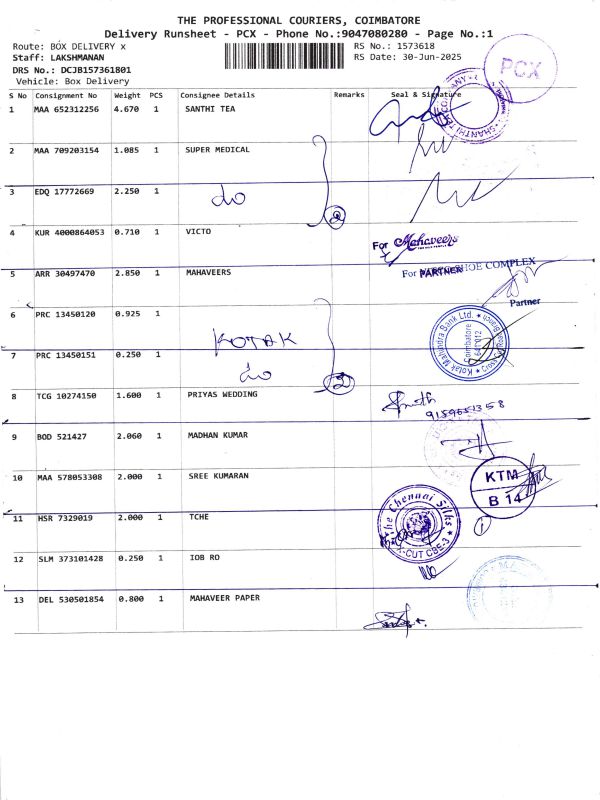 THE PROFESSIONAL COURIERS, COIMBATORE
Delivery Runsheet - PCX - Phone No.:9047080280 - Page No.:1
Route: BOX DELIVERY x
RS No.: 1573618
Staff: LAKSHMANAN
RS Date: 30-Jun-2025
DRS No.: DCJB157361801
Vehicle: Box Delivery
PCX
S No Consignment No Weight PCS Consignee Details Remarks Seal & Signature
1 MAA 652312256 4.670 1 SANTHI TEA
SHANTHI TEA COMPANY
2 MAA 709203154 1.085 1 SUPER MEDICAL
3 EDQ 17772669 2.250 1 do
2
4 KUR 4000864053 0.710 1 VICTO
For Mahaveers
PARTNER
5 ARR 30497470 2.850 1 MAHAVEERS
For SHOE COMPLEX
Partner
6 PRC 13450120 0.925 1 KOTAK
Kotak Mahindra Bank Ltd.
Coimbatore
641012
7 PRC 13450151 0.250 1 do
2
8 TCG 10274150 1.600 1 PRIYAS WEDDING
9159651358
9 BOD 521427 2.060 1 MADHAN KUMAR
10 MAA 578053308 2.000 1 SREE KUMARAN
KTM
B 14
11 HSR 7329019 2.000 1 TCHE
The Chennai Silks
X-CUT CBE-3
1
12 SLM 373101428 0.250 1 IOB RO
13 DEL 530501854 0.800 1 MAHAVEER PAPER